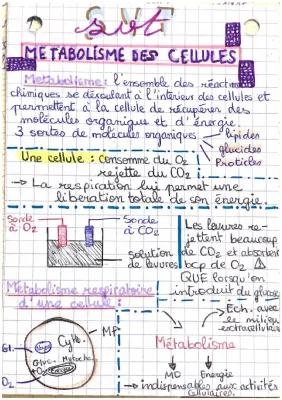 svt
METABOLISME DES CELLULES
Metabolisme : l'ensemble des réactions
chimiques se déroulant à l'intérieur des cellules et
permettent à la cellule de récupérer des
molécules organique et d'énergie.
3 sortes de molécules organiques
Lipides
glucides
Proticles
Une cellule : consomme du O2
rejette du CO2
→ La respiration lui permet une
liberation totale de son énergie.
Sonde
à O2
Sonde
à CO2
solution
de levures
Les levures re-
jettent beaucoup
de CO2 et absorbent
bcp de O2 ⚠
QUE lorsqu'on
introduit du glucose
Métabolisme respiratoire
d'une cellule :
Cyto.
MP
Gl.
Gluc.
Mitocho.
O2
+O2
Métabolisme
Ech. avec
le milieu
extracellulaire
MO
Energie
→ indispensables aux activités
cellulaires.